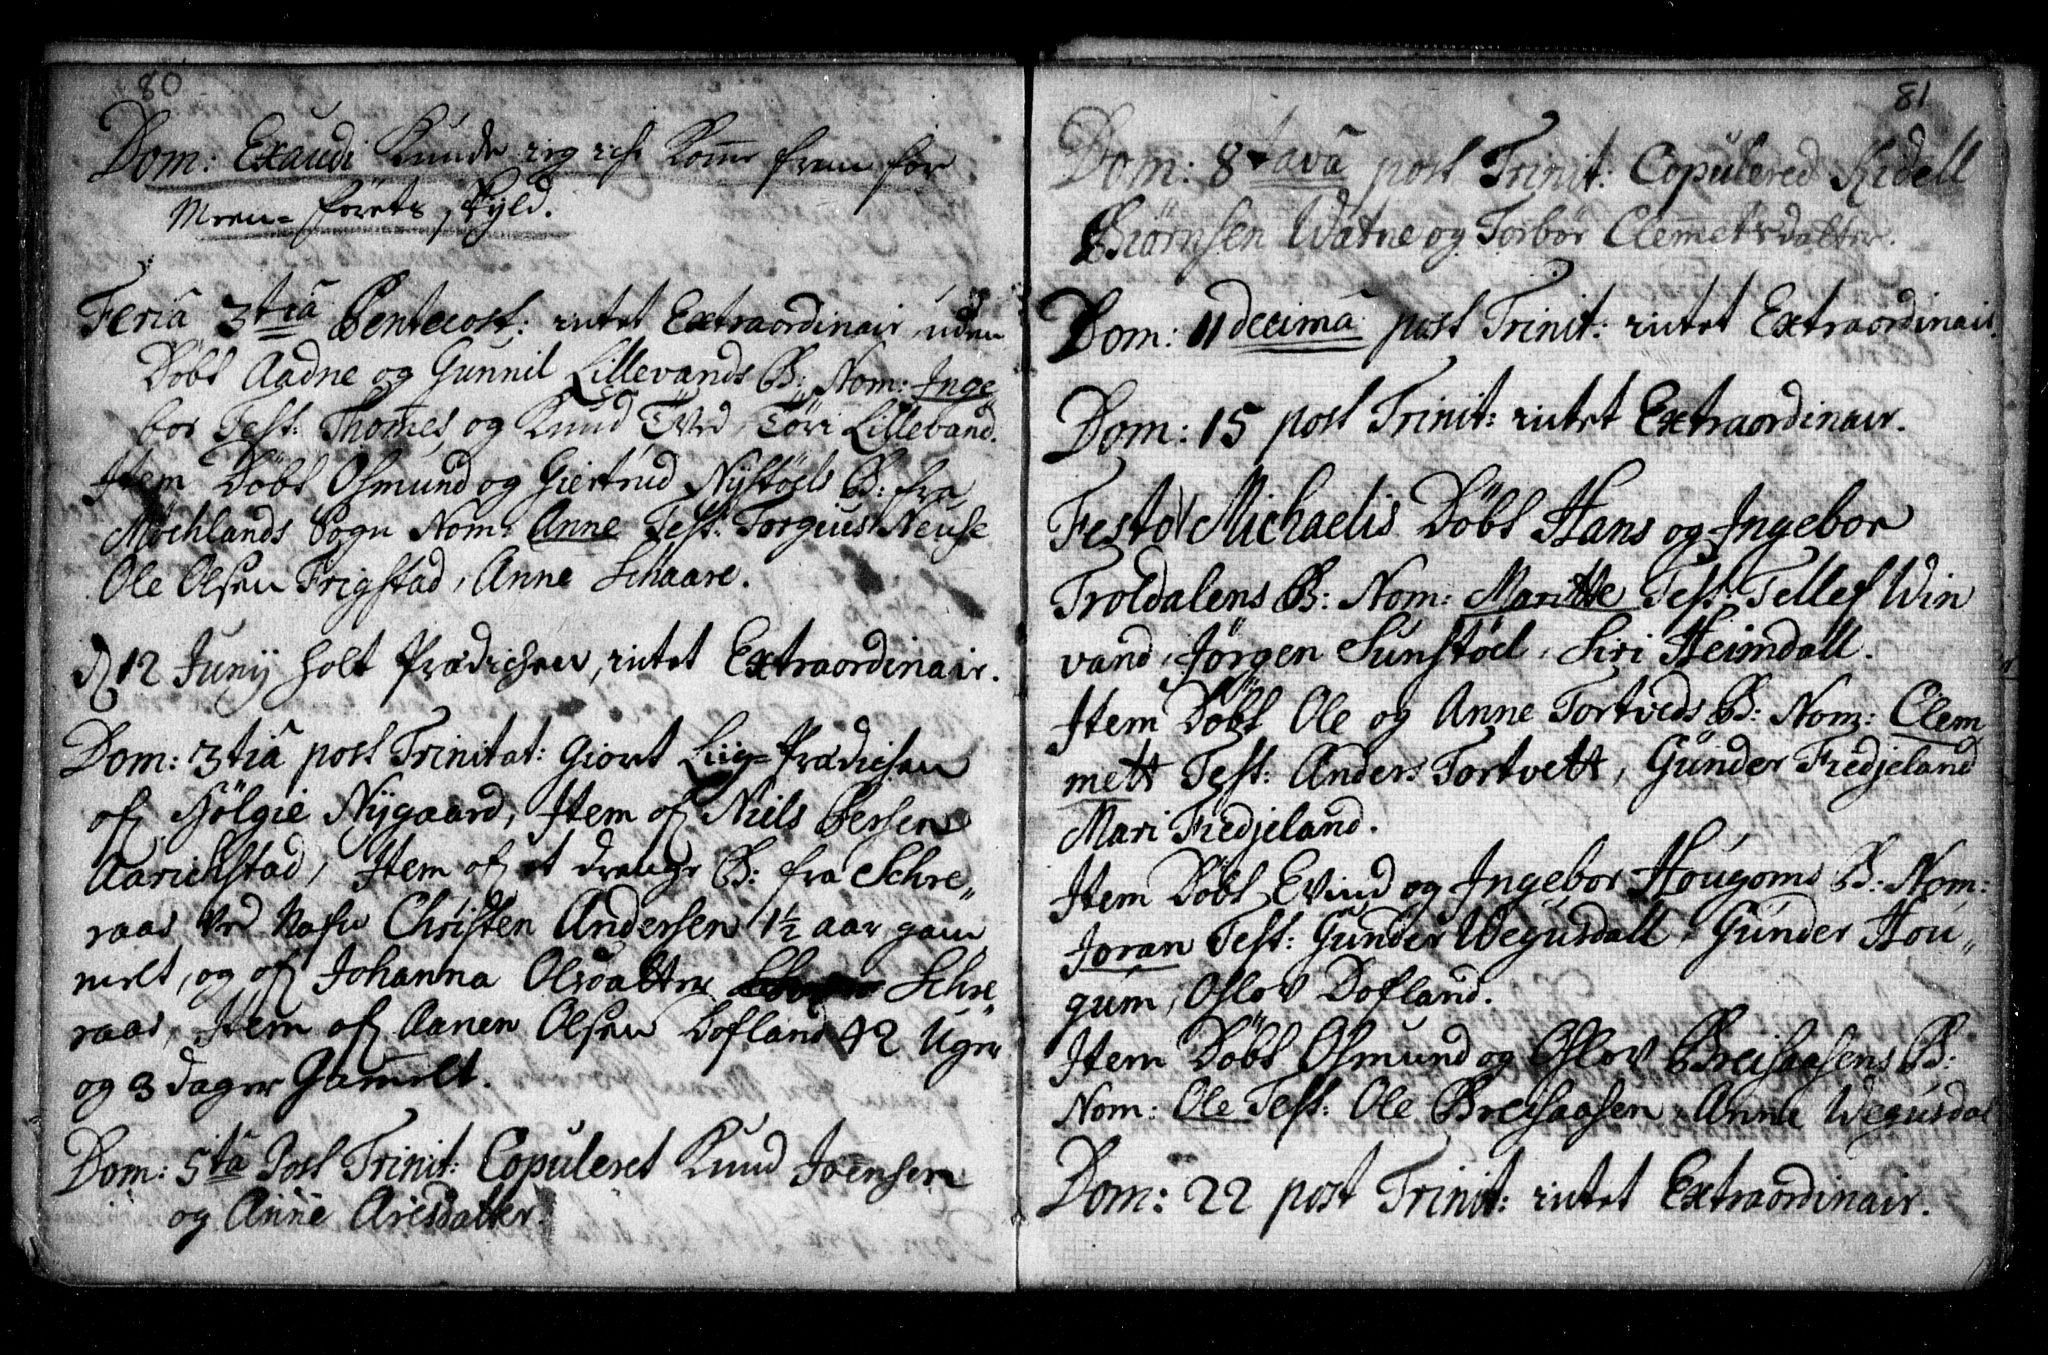 80
Dom: Exaudi Kunde ieg icke Komme frem for
Meen=förets skyld.
Feria 3tiâ Pentecost: intet Extraordinair, uden
Döbt Aadne og Gunnil Lillevands B: Nom: Inge„
bor Test: Thomes og Knud Tved, Töri Lillevand.
Item Döbt Osmund og Giertrud Nystöels B: fra
Mochlands Sogn Nom: Anne Test: Torgius Neuse
Ole Olsen Frigstad, Anne Schaare.
D 12 Junij holt Prædichen, intet Extraordinair.
Dom: 3tiâ post Trinitat: Giort Liig=Prædichen
of Hölgie Nygaard, Item of Niels Persen
Aarichstad, Item of et drenge B: fra Schre„
raas ved Nafn Christen Andersen 1½ aar gam
melt, og of Johanna Olsdatter Schre„
raas, Item of Aanen Olsen Dofland 42 Uger
og 3 dager Gamelt.
Dom: 5tâ Post Trinit: Copuleret Knud Joensen
og Anne Aresdatter.
81
Dom: 8tavâ post Trinit: Copulered Kidell
Biörnsen Watne og Torbör Clemetsdatter.
Dom: 11decimâ post Trinit: intet Extraordinair.
Dom: 15 post Trinit: intet Extraordinair.
Festo Michaelis Döbt Hans og Ingebor
Troldalens B: Nom: Maritte Test: Tellef Win
vand, Jörgen Sunstöel, Siri Heimdall.
Item Döbt Ole og Anne Tortveds B: Nom: Clem
mett Test: Anders Tortvett, Gunder Fiedjeland
Mari Fiedjeland.
Item Döbt Evind og Ingebor Hougoms B: Nom:
Joran Test: Gunder Wegusdall, Gunder Hou„
gum, Oslov Dofland.
Item Döbt Osmund og Oslov Breisaasens B:
Nom: Ole Test: Ole Breisaasen, Anne Wegusdal
Dom: 22 post Trinit: intet Extraordinair.